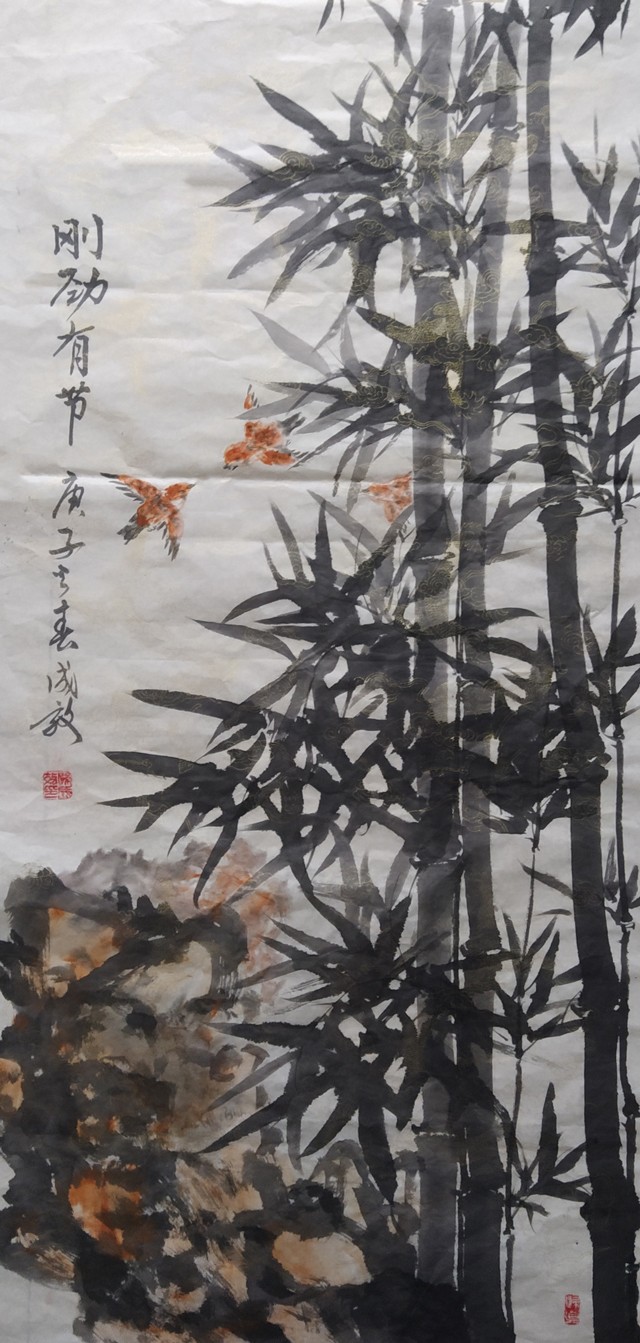 刚劲有节 庚子之春 成敏